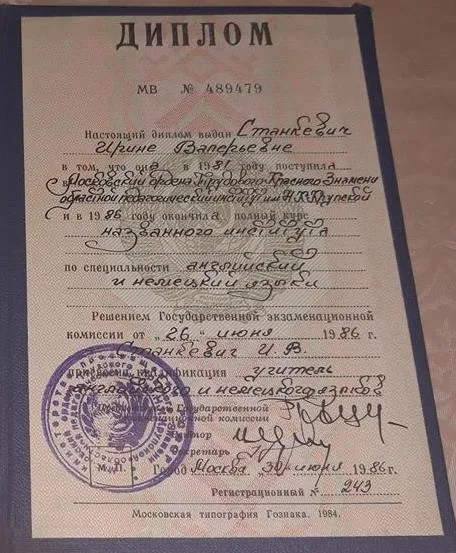 ДИПЛОМ
МВ № 489479
Настоящий диплом выдан Станкевич
Ирине Валерьевне
в том, что она в 1981 году поступила
в Московский ордена Трудового Красного Знамени
областной педагогический институт им. Н.К. Крупской
и в 1986 году окончила полный курс
названного института
по специальности английский
и немецкий языки
Решением Государственной экзаменационной
комиссии от "26" июня 1986 г.
Станкевич И. В.
присвоена квалификация учитель
английского и немецкого языков
Председатель Государственной
экзаменационной комиссии
Ректор
Секретарь
М.П. Город Москва 30 июня 1986 г.
Регистрационный № 243
Московская типография Гознака. 1984.